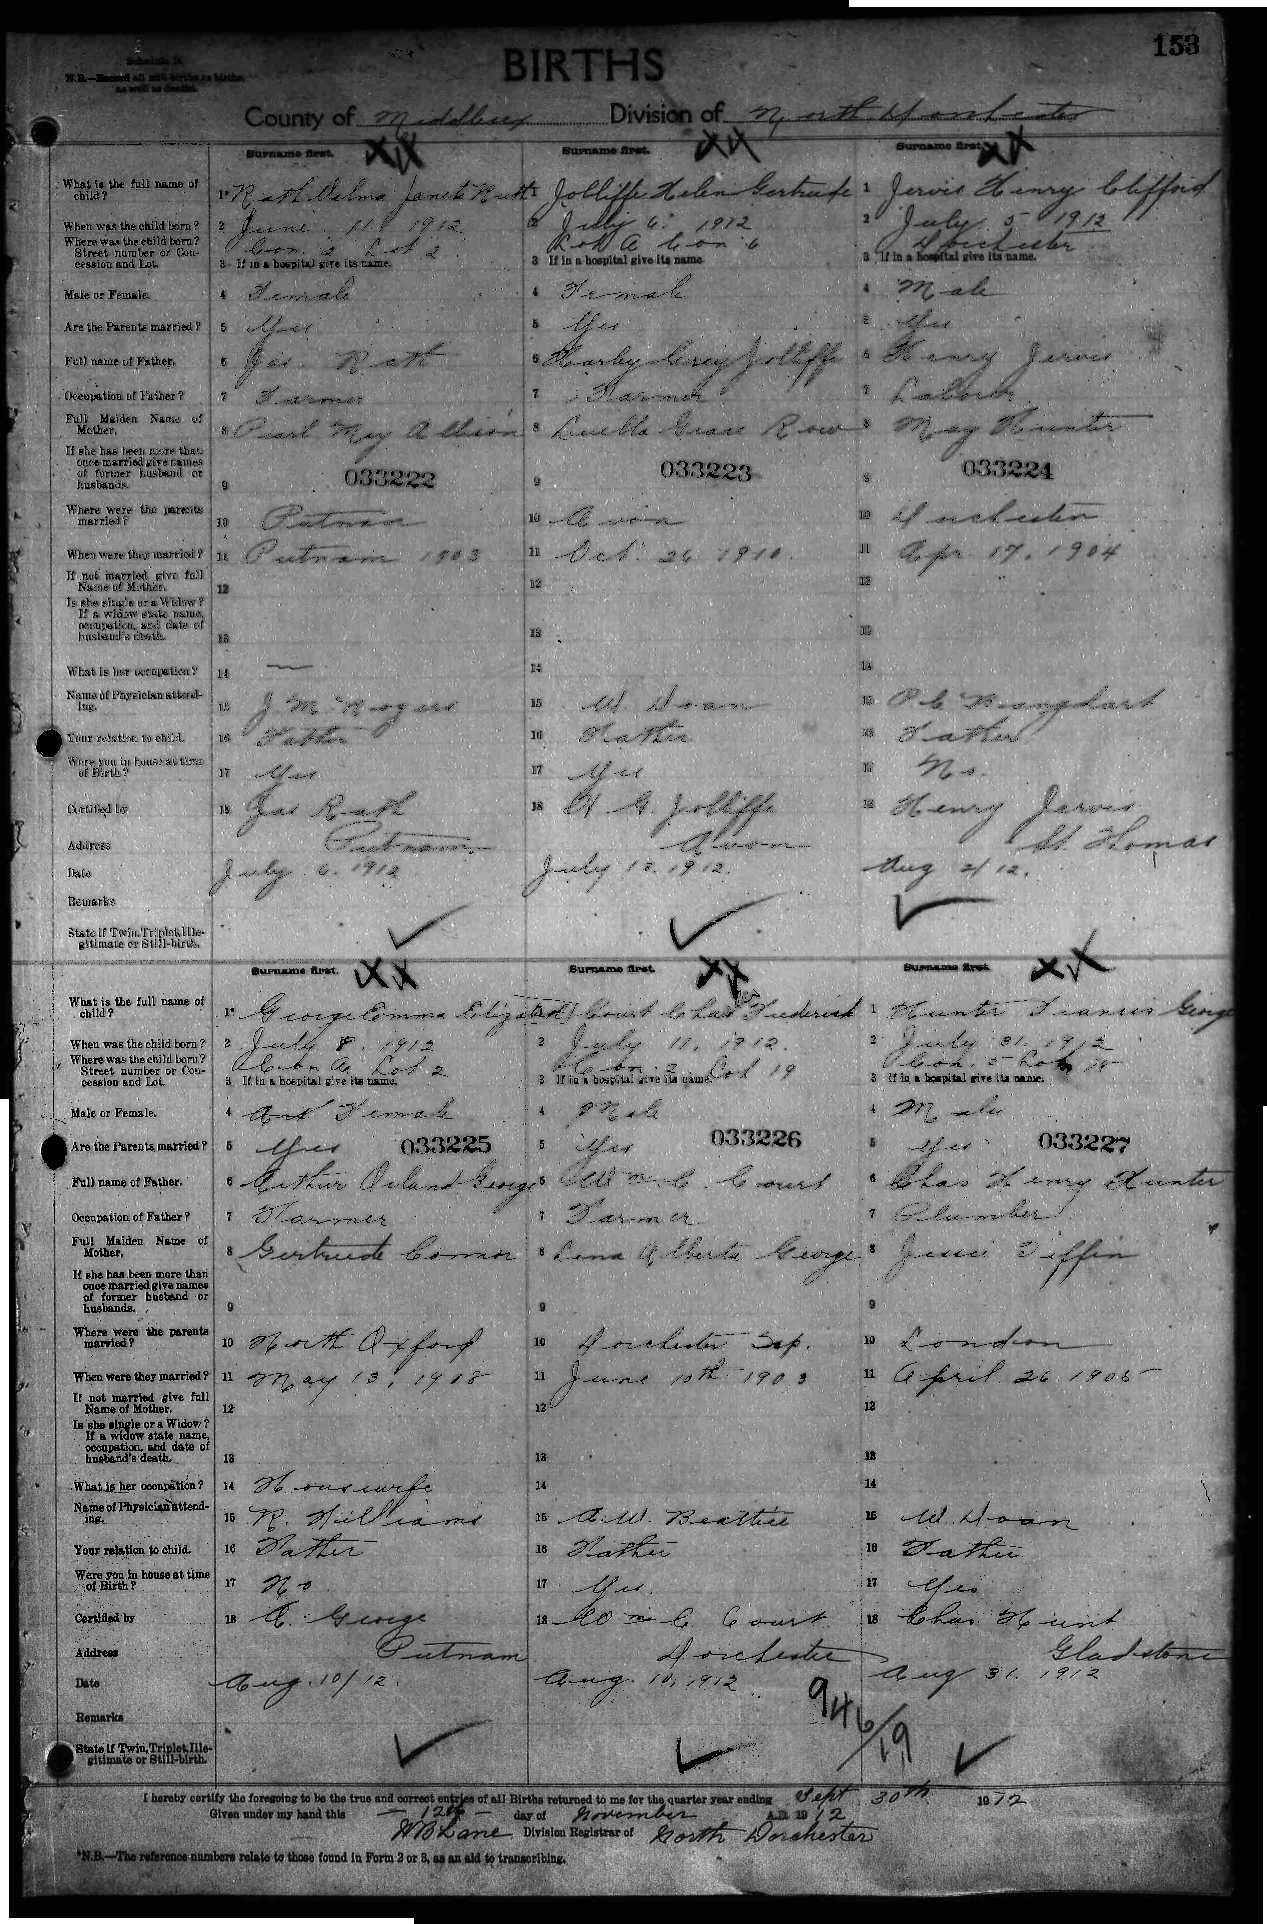 153
Schedule A
N.B.—Record all still-births as births, as well as deaths.
BIRTHS
County of Middlesex Division of North Dorchester
Surname first. Surname first. Surname first.
What is the full name of child? 1* Rath Velma Janeta Ruth 1 Jolliffe Helen Gertrude 1 Jervis Henry Clifford
When was the child born? 2 June 11 1912 2 July 6. 1912 2 July 5 1912
Where was the child born? Street number or Concession and Lot. 3 Con 2 Lot 2 If in a hospital give its name. 3 Lot A Con 6 If in a hospital give its name 3 Dorchester If in a hospital give its name.
Male or Female. 4 Female 4 Female 4 Male
Are the Parents married? 5 Yes 5 Yes 5 Yes
Full name of Father. 6 Jas. Rath 6 Harley Grey Jolliffe 6 Henry Jervis
Occupation of Father? 7 Farmer 7 Farmer 7 Laborer
Full Maiden Name of Mother. 8 Pearl May Allison 8 Luella Grace Row 8 May Hunter
If she has been more than once married give names of former husband or husbands. 9 033222 9 033223 9 033224
Where were the parents married? 10 Putnam 10 Avon 10 Dorchester
When were they married? 11 Putnam 1903 11 Oct. 26 1910. 11 Apr. 17. 1904
If not married give full Name of Mother. 12 12 12
Is she single or a Widow? If a widow state name, occupation, and date of husband's death. 13 13 13
What is her occupation? 14 — 14 14
Name of Physician attending. 15 J. M. Rogers 15 W. Doan 15 P. C. Banghart
Your relation to child. 16 Father 16 Father 16 Father
Were you in house at time of Birth? 17 Yes 17 Yes 17 No.
Certified by 18 Jas Rath 18 H G. Jolliffe 18 Henry Jervis
Address Putnam Avon St. Thomas
Date July 6. 1912 July 12. 1912. Aug 2/12.
Remarks
State if Twin, Triplet, Illegitimate or Still-birth.
Surname first. Surname first. Surname first.
What is the full name of child? 1* George Emma Court Chas Frederick 1 Hunter Francis George
When was the child born? 2 July 8. 1912 2 July 11. 1912. 2 July 31. 1912
Where was the child born? Street number or Concession and Lot. 3 Con A Lot 2 If in a hospital give its name. 3 Con. 2. Lot 19 If in a hospital give its name. 3 Con. 5 Lot If in a hospital give its name.
Male or Female. 4 Female 4 Male 4 Male
Are the Parents married? 5 Yes 033225 5 Yes 033226 5 Yes 033227
Full name of Father. 6 Arthur Orland George 6 Wm. C. Court 6 Chas Henry Hunter
Occupation of Father? 7 Farmer 7 Farmer 7 Plumber
Full Maiden Name of Mother. 8 Gertrude Connor 8 Lena Alberta George 8 Jessie Tiffin
If she has been more than once married give names of former husband or husbands. 9 9 9
Where were the parents married? 10 North Oxford 10 Dorchester Sta. 10 London
When were they married? 11 May 13, 1908 11 June 10th 1903 11 April 26 1905
If not married give full Name of Mother. 12 12 12
Is she single or a Widow? If a widow state name, occupation, and date of husband's death. 13 13 13
What is her occupation? 14 Housewife 14 14
Name of Physician attending. 15 R. Williams 15 A. W. Beattie 15 W. Doan
Your relation to child. 16 Father 16 Father 16 Father
Were you in house at time of Birth? 17 No 17 Yes. 17 Yes
Certified by 18 A. George 18 Wm C Court 18 Chas Hunt
Address Putnam Dorchester Gladstone
Date Aug. 10/12. Aug. 10, 1912 Aug 31. 1912
946/19
Remarks
State if Twin, Triplet, Illegitimate or Still-birth.
I hereby certify the foregoing to be the true and correct entries of all Births returned to me for the quarter year ending Sept 30th 1912
Given under my hand this — 12th — day of November A.D. 1912
W B Lane Division Registrar of North Dorchester
*N.B.—The reference numbers relate to those found in Form 2 or 3, as an aid to transcribing.